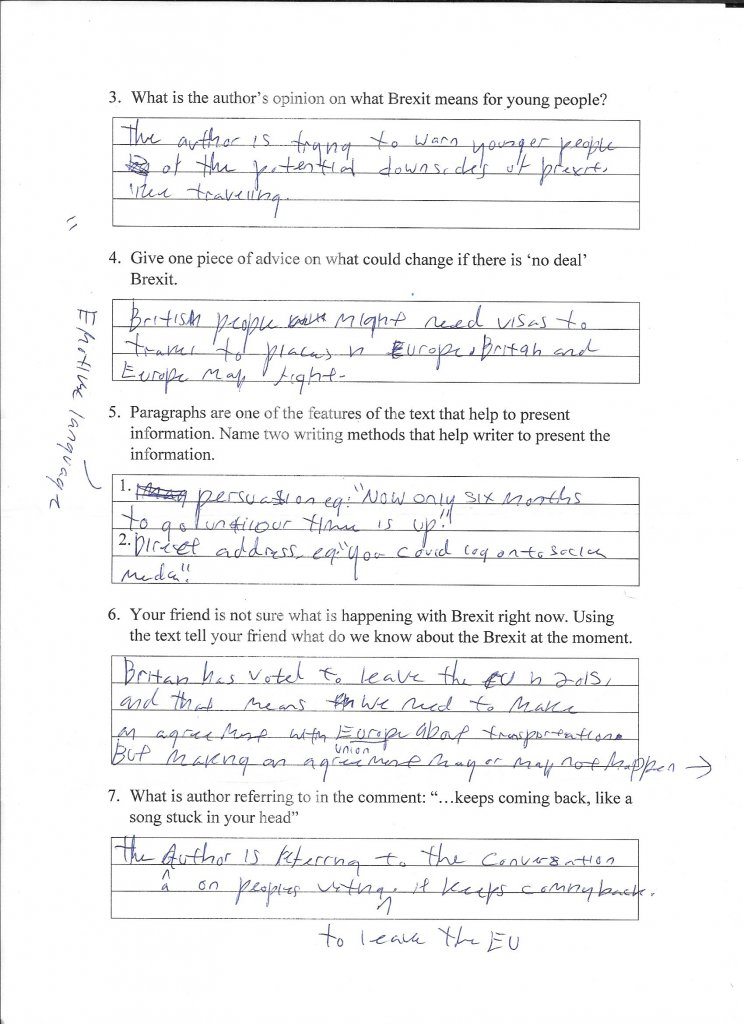 3. What is the author's opinion on what Brexit means for young people?
The author is tryng to warn younger people
of the potential downsides of brexit,
like traveling.
4. Give one piece of advice on what could change if there is 'no deal'
Brexit.
British people might need visas to
travel to places in Europe. Britan and
Europe may fight.
Emotive language
5. Paragraphs are one of the features of the text that help to present
information. Name two writing methods that help writer to present the
information.
1. persuasion eg: "Now only six months
to go until our time is up!"
2. Direct address. eg: "you could log on to social
media"!
6. Your friend is not sure what is happening with Brexit right now. Using
the text tell your friend what do we know about the Brexit at the moment.
Britan has voted to leave the EU in 2015,
and that means we need to make
an agreement with Europe about transportation.
union
But making an agreement may or may not happen →
7. What is author referring to in the comment: "…keeps coming back, like a
song stuck in your head"
The Author is referring to the conversation
on peoples voting. it keeps coming back.
to leave the EU